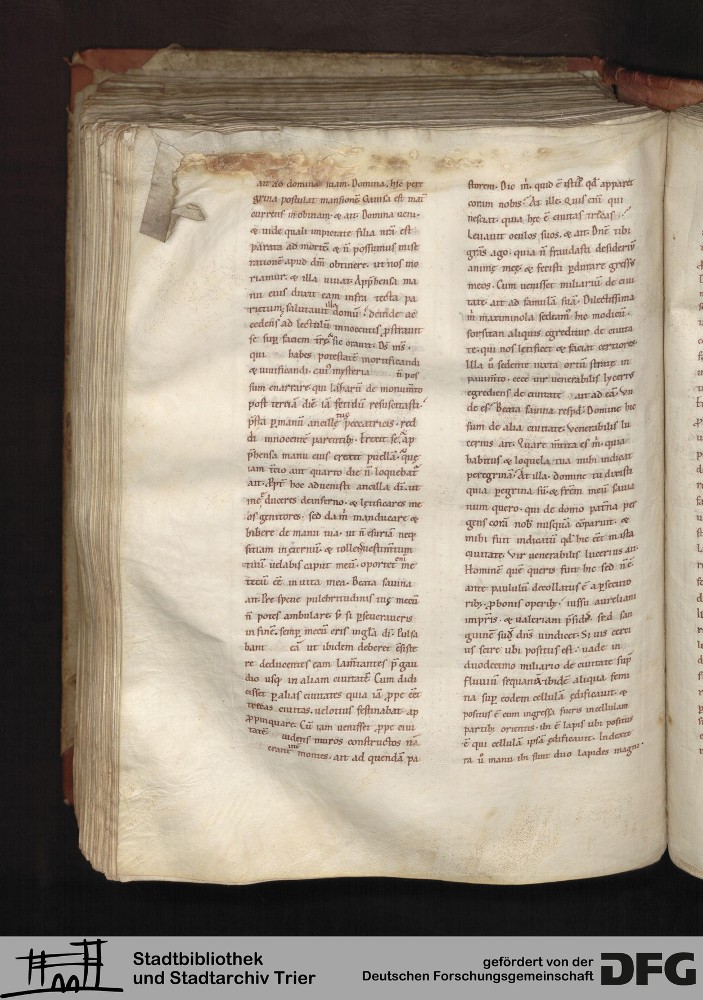 ait ad dominā suam. Domina, hic pere
grina postulat mansionē Gavisa est mat
currens in obviam. & ait. Domina veni.
& vide quali impietate filia nr̄a est
parata ad mortē & n̄ possumus mise
rationē apud dm̄ obtinere. ut nos mo
riamur. & illa vivat. Apphensa ma
nu eius duxit eam infra tecta pa
rietum. salutavit illa domū. deinde ac
cedens ad lectulū innocentis pstravit
se sup faciem
qui habes potestatē mortificandi
& vivificandi. cui mysteria n̄ pos
sum enarrare. qui lazarū de monumto
post terciā diē iā fetidū resuscitasti.
psta p manū ancillę tuę peccatricis. red
di innocentē parentib;. Erexit se. & ap
phensa manu eius erexit puellā. quę
iam icio aut quarto die n̄ loquebat
ait. Appt hoc advenisti ancilla di. ut
me educeres de inferno. & lętificares me
os genitores. sed da m manducare &
bibere de manu tua. ut n̄ esuriā neq;
sitiam in ęternū. & tolle vestimtum
tuū velabis caput meū. oportet eni me
tecū eē in vita mea. Beata savina
ait. Pre specie pulchritudinis tuę mecū
n̄ potes ambulare. s; si pseveraveris
in finē. semp mecū eris in gla di. Pulsa
bant eā ut ibidem deberet csiste
re deducentes eam lacrimantes p gau
dio usq; in aliam civitatē. Cum didi
cisset p alias civitates quia iā ppe eēt
trecas civitas. velotius festinabat ap
ppinquare. Cū iam venisset ppe civi
tatē videns muros constructos nā
erant montes. ait ad quendā pa
storem. Dic m. quid ē istud qd apparet
coram nobis. At ille. Quis enī qui
nesciat. quia hęc ē civitas trecas.
Levavit oculos suos. & ait. Dnē tibi
grās ago. quia n̄ fraudasti desideriū
animę meę & fecisti pdurare gressus
meos. Cum venisset miliariū de civi
tate. ait ad famulā suā. Dilectissima
m maximinola sedeam hic modicū.
forsitan aliquis egreditur de civita
te. qui nos lętificet & faciat certiores.
Illa ū sedente iuxta ortū strate in
pavimto. ecce vir venerabilis lycerius
egrediens de civitate ait ad eā. Un
de es. Beata savina respd. Domine hic
sum de alia civitate. Venerabilis li
cerius ait. Quare mtita es m. quia
habitus & loquela tua mihi indicat
peregrinā. At illa. domine tu dixisti
quia pegrina sū. & frem meū savia
num quero. qui de domo patna per
gens corā nob nusquā cōparuit. &
mihi fuit indicatū qd hic eēt in ista
civitate. Vir venerabilis lucerius ait.
Hominē quē queris fuit hic sed n ē.
ante paululū decollatus ē a psecuto
rib; p bonis operib;. iussu aureliani
impris. & valeriani psidis. sed san
guinē suū dns vindicet. Si vis cerci
us scire ubi positus est. vade in
duodecimo miliario de civitate sup
fluviū sequanā. ibidē aliqua femi
na sup eodem cellulā ędificavit. &
positus ē cum ingressa fueris in cellulam
partib; orientis. ibi ē lapis ubi positus
ē qui cellulā ipsā ędificavit. In dexte
ra ū manu ibi sunt duo lapides magni.
Stadtbibliothek
und Stadtarchiv Trier
gefördert von der
Deutschen Forschungsgemeinschaft
DFG